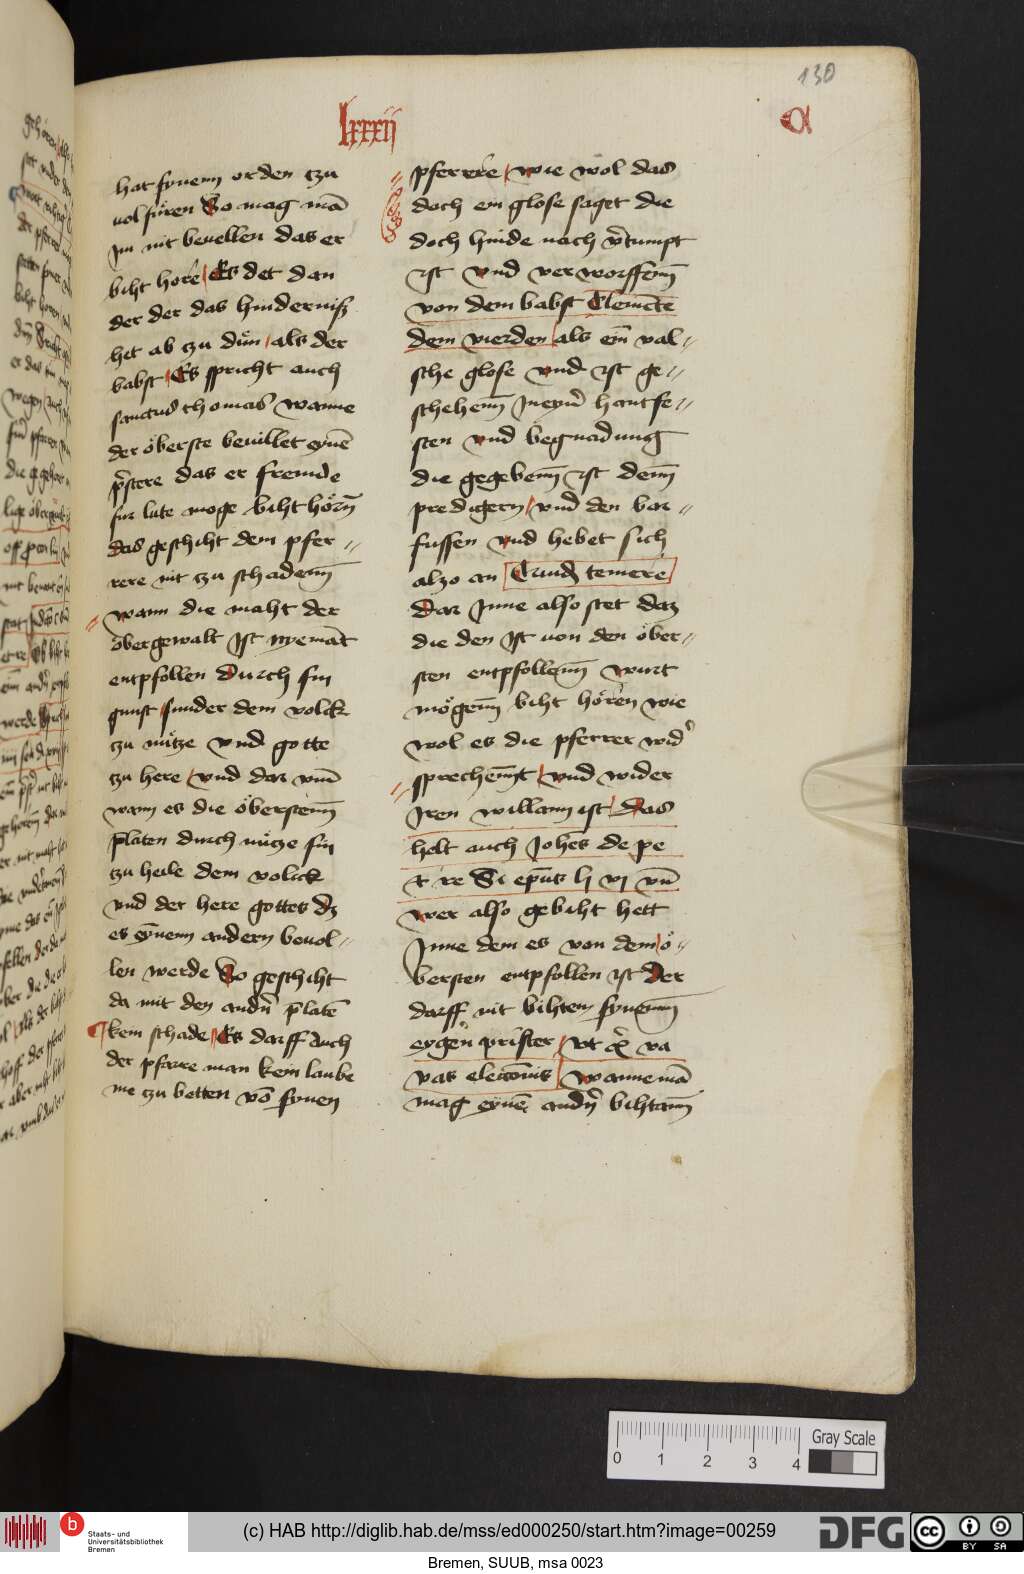 130
lxxxij
a
hat synem orden tzu
uol füren So mag mā
im nit beuellen das er
biht hore Es det dan
der der das hinderniß
het ab tzu dün als der
babst Es spricht auch
sanctus thomas wanne
der öberste beuillet eynē
pͥstere das er fremde
fur lute moge biht hörn̄
das geschiht dem pfer //
rere nit zu schadenn̄
wann die maht der
öbergewalt ist nyemāt
entpfollen durch sin
gunst sunder dem volck
tzu nütze vnd gotte
tzu here vnd dar vm̄
wann es die öberstenn̄
p̄laten durch nütze sin
tzu heile dem volick
vnd der here gottes dz
es eynem andern beuol //
len werde So geschiht
da mit den andn̄ p̄latē
kein schade Es darff auch
der pfarre man kein laube
me tzu betten vō synen
pferrere wie wol das
doch ein glose saget die
doch hinde nach v̄tumpt
ist vnd verworffenn̄
von dem babst Clemētē
dem vierden als ein̄ val //
sche glose vnd ist ge //
schehenn̄ in eyn̄ hantfe //
sten vnd begnadung
die gegebenn̄ ist denn̄
predigern vnd den bar //
fussen vnd hebet sich
alzo an Quidam temere
Dar inne also stet daz
die den ist von den öber //
sten entpfollenn̄ wurt
mögenn̄ biht hören wie
wol es die pferrer wid̾
sprechennt vnd wider
iren willann ist das
helt auch Johes de pe
t re Si ep̄us li vi vn̄
wer also gebiht hett
Inne dem es von dem ö //
bersten entpfollen ist Der
darff nit bihten synenn̄
eygen prister vt ex̄ va
vas electōnis wanne mā
mag eynē andn̄ bihtann̄
0 1 2 3 4
Gray Scale
Staats- und
Universitätsbibliothek
Bremen
(c) HAB http://diglib.hab.de/mss/ed000250/start.htm?image=00259
DFG
cc BY SA
Bremen, SUUB, msa 0023